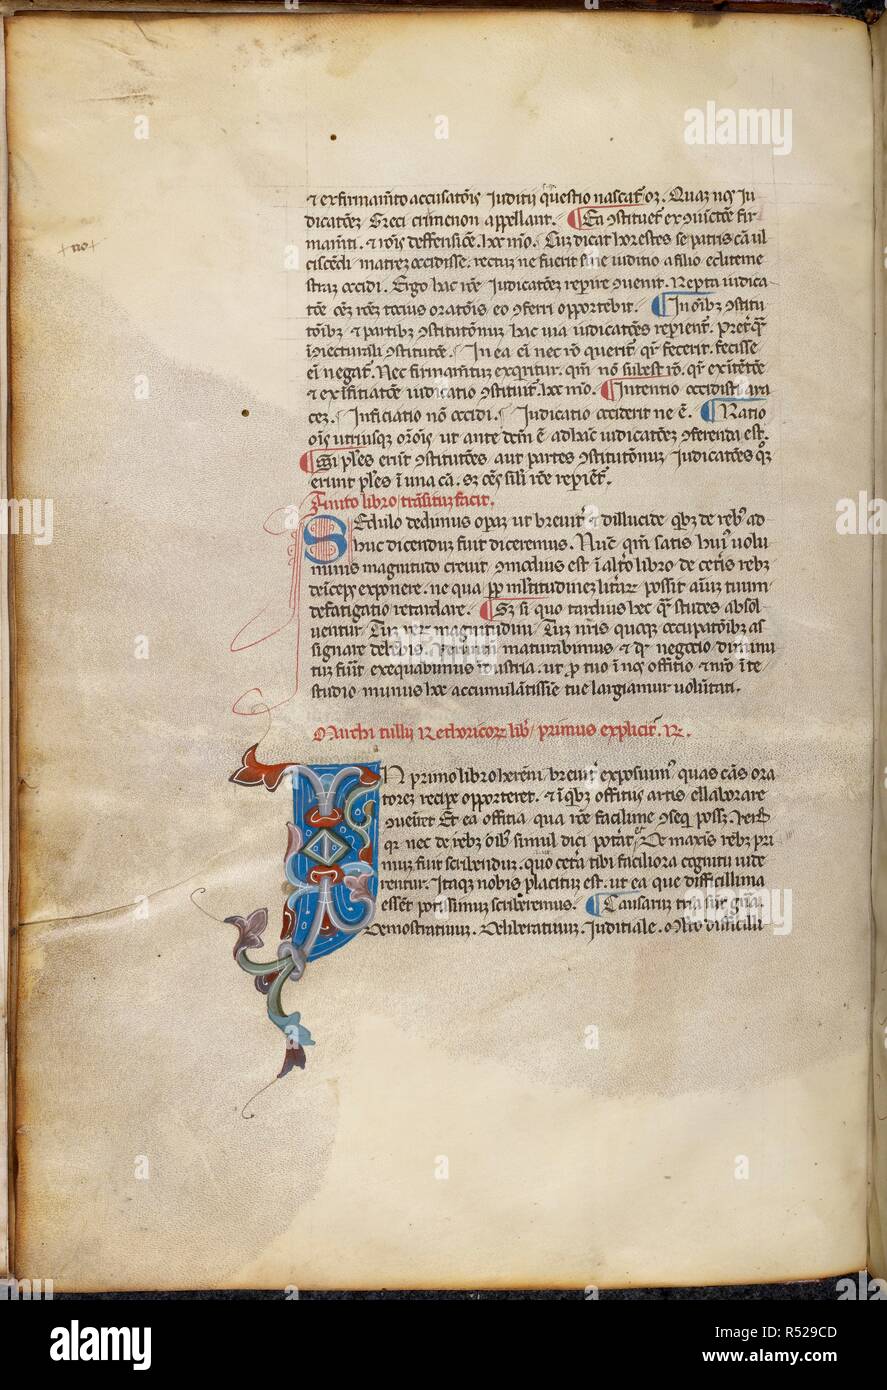 ⁊ ex firmam̄to accusatōis Juditii q̄uestio nascat̄ oz. Quaz nos Ju
dicatōez Greci crimenon appellant. Ea ꝯstituet̄ ex ꝯiuctōe fir
mam̄ti. ⁊ rōis deffensiōe. hoc mō. Cuz dicat horestes se patris cā ul
ciscēdi matrez occidisse. rectuz ne fuerit sine iuditio a filio clitēme
straz occidi. Ergo hac rōe Judicatōez repire ꝯuenit. Repta iudica
tōe oēz rōez totius oratōis eo ꝯferri opportebit. In oībz ꝯstitu
tōibz ⁊ partibz ꝯstitutōnuz hac uia iudicatōes repient̄. pret̄qꝫ
ī ꝯiecturali ꝯstitutōe. In ea eī nec rō querit̄ qr̄ fecerit. fecisse
eī negat̄. Nec firmam̄tuz exqritur. qm̄ nō subest rō. qr̄ ex ītētōe
⁊ ex īfitiatōe iudicatio ꝯstituit̄ hoc mō. Intentio occidisti aia
cez. Inficiatio nō occidi. Judicatio occiderit ne ē. Ratio
oīs utriusqꝫ orōis ut ante dcm̄ ē ad hāc iudicatōez ꝯferenda est.
Si pl̄es erūt ꝯstitutōes aut partes ꝯstitutōnuz Judicatōes qꝫ
erunt pl̄es ī una cā. sz oēs sil̄i rōe repient̄.
Finito libro trāsituz facit.
SEdulo dedimus operaz ut breuit̄ ⁊ dillucide qbz de rebꝫ ad
huc dicenduz fuit diceremus. Nūc qm̄ satis huiꝰ uolu
minis magnitudo creuit ꝯmodius est ī alt̄o libro de cet̄is rebz
deīceps exponere. ne qua pp̄ mltitudinez litt̄ar possit aīuz tuum
defatigatio retardare. Sz si quo tardius hec qꝫ studes absol
uentur Cuz rer magnitudini Cuz nr̄is quoqꝫ occupatōibz as
signare debebis. maturabimus ⁊ qd negocio diminu
tuz fuīt exequabimus īdustria. ut p tuo ī nos offitio ⁊ nr̄o ī te
studio munus hoc accumulātissīe tue largiamur uolūtati.
Marchi tullij Rethoricor lib̄ primus explicit. R.
IN primo libro herēni breuit̄ exposuimꝰ quas cās ora
torez recipe opporteret. ⁊ ī qbz offitiis artis ellaborare
ꝯueniret Et ea offitia qua rōe facilime ꝯseq possz. Verū
qr nec de rebz oībꝫ simul dici potāt ⁊ de maxis rebz pri
muz fuit scribenduz. quo cet̄a tibi faciliora cognitu uide
rentur. Itaqꝫ nobis placituz est. ut ea que difficillima
essēt potissimuz scriberemus. Causaruz tria sūt gn̄a.
Demostratiuuz. Deliberatiuuz. Juditiale. Mlto difficilli
alamy
alamy
alamy
Image ID: R529CD
www.alamy.com